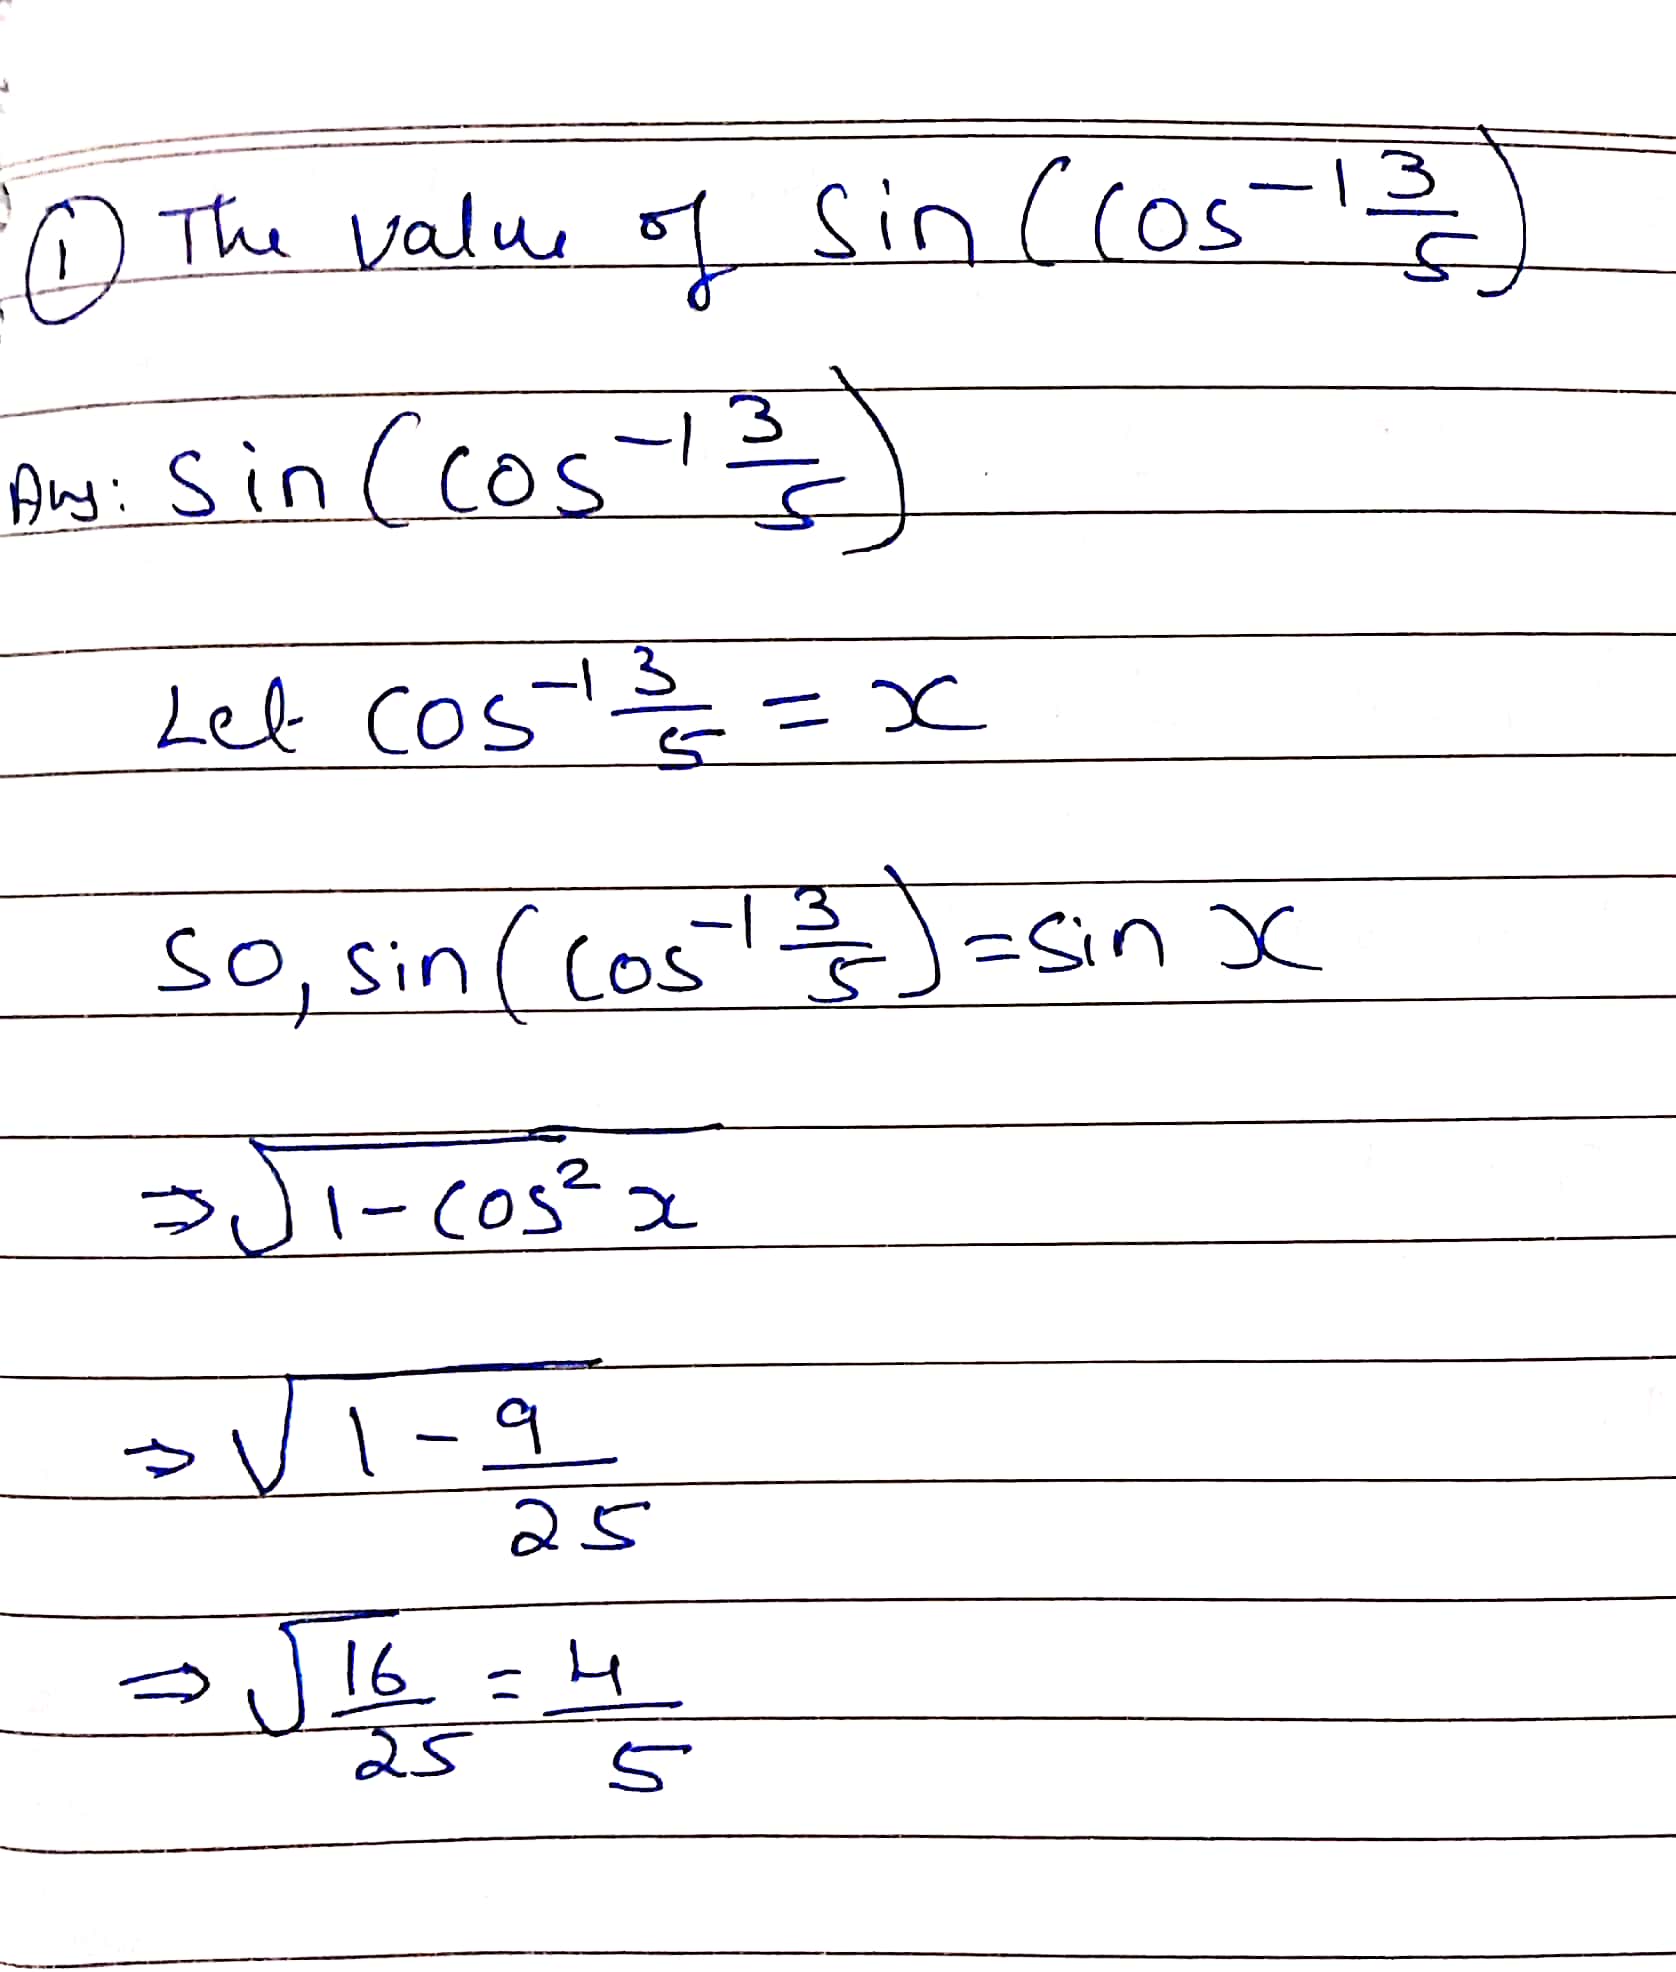 ① The value of Sin (cos⁻¹ 3/5)
Ans: Sin (cos⁻¹ 3/5)
Let cos⁻¹ 3/5 = x
So, sin (cos⁻¹ 3/5) = sin x
⇒ √(1 - cos² x)
⇒ √(1 - 9/25)
⇒ √(16/25) = 4/5